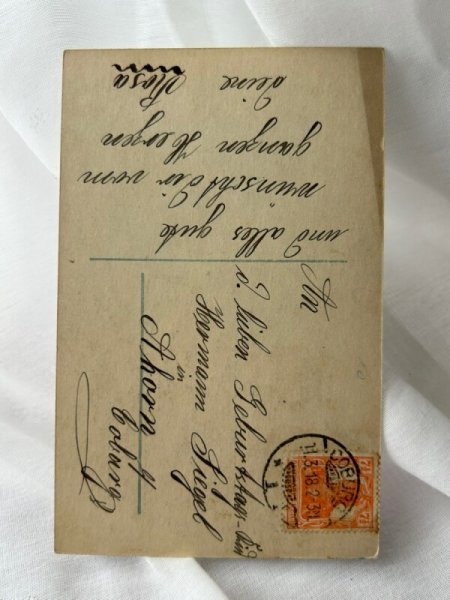 und alles gute
wünscht Dir vom
ganzen Herzen
Deine Rosa
An
d. lieben Geburtstags-Kind
Hermann Siegel
in
Ahorn
b/ Coburg
COBURG
11.3.18.2-3N
7½